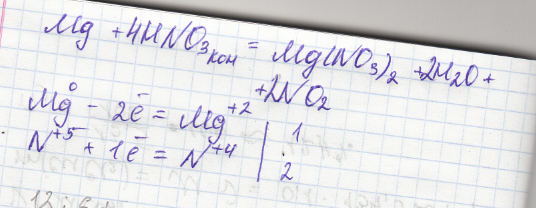 Mg + 4HNO₃ кон = Mg(NO₃)₂ + 2H₂O +
+ 2NO₂
Mg⁰ - 2ē = Mg⁺² | 1
N⁺⁵ + 1ē = N⁺⁴ | 2